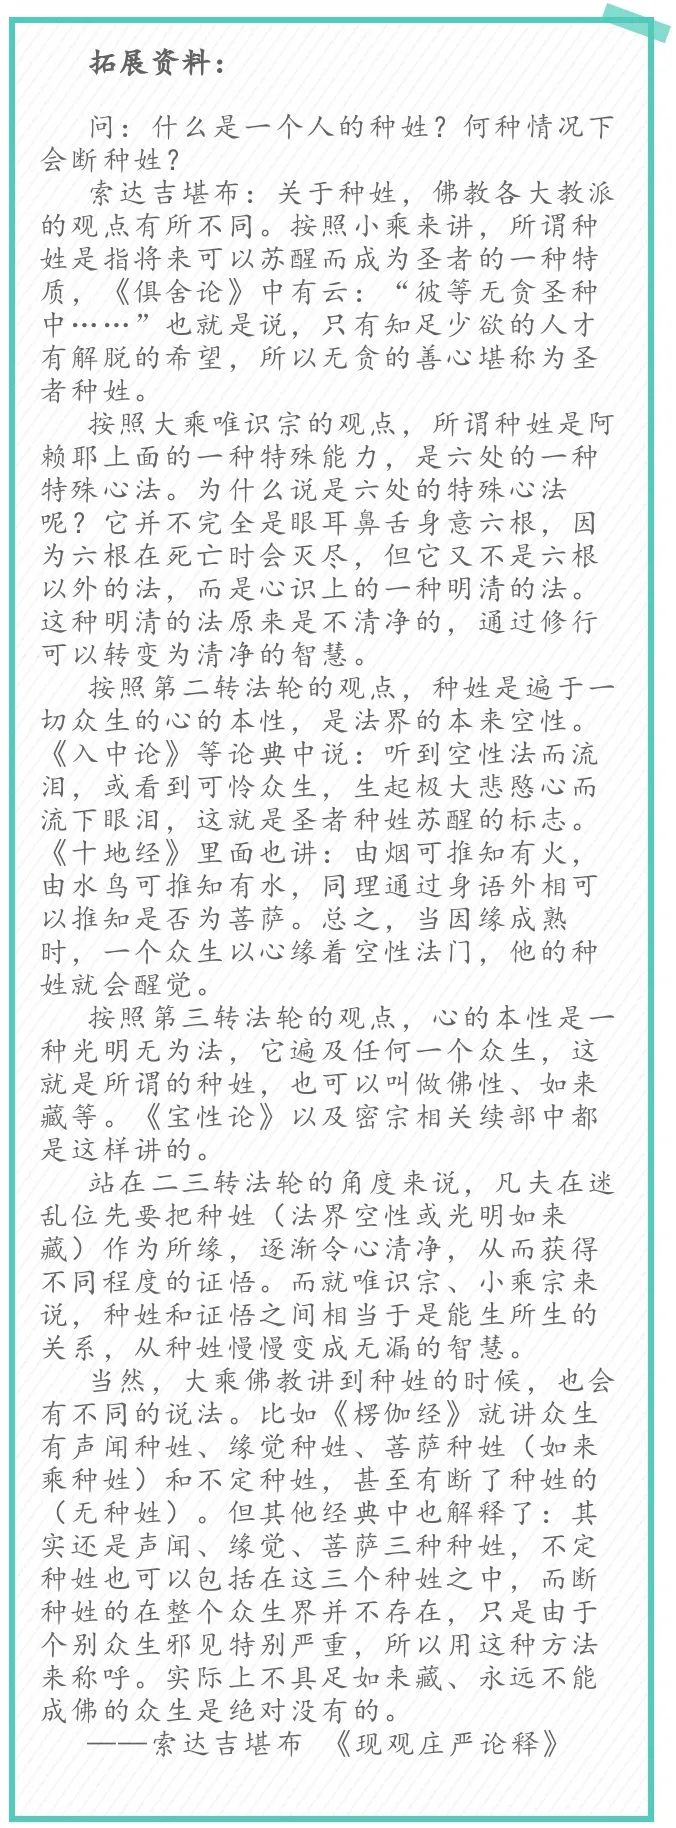 拓展资料：
问：什么是一个人的种姓？何种情况下
会断种姓？
索达吉堪布：关于种姓，佛教各大教派
的观点有所不同。按照小乘来讲，所谓种
姓是指将来可以苏醒而成为圣者的一种特
质，《俱舍论》中有云：“彼等无贪圣种
中……”也就是说，只有知足少欲的人才
有解脱的希望，所以无贪的善心堪称为圣
者种姓。
按照大乘唯识宗的观点，所谓种姓是阿
赖耶上面的一种特殊能力，是六处的一种
特殊心法。为什么说是六处的特殊心法
呢？它并不完全是眼耳鼻舌身意六根，因
为六根在死亡时会灭尽，但它又不是六根
以外的法，而是心识上的一种明清的法。
这种明清的法原来是不清净的，通过修行
可以转变为清净的智慧。
按照第二转法轮的观点，种姓是遍于一
切众生的心的本性，是法界的本来空性。
《入中论》等论典中说：听到空性法而流
泪，或看到可怜众生，生起极大悲愍心而
流下眼泪，这就是圣者种姓苏醒的标志。
《十地经》里面也讲：由烟可推知有火，
由水鸟可推知有水，同理通过身语外相可
以推知是否为菩萨。总之，当因缘成熟
时，一个众生以心缘着空性法门，他的种
姓就会醒觉。
按照第三转法轮的观点，心的本性是一
种光明无为法，它遍及任何一个众生，这
就是所谓的种姓，也可以叫做佛性、如来
藏等。《宝性论》以及密宗相关续部中都
是这样讲的。
站在二三转法轮的角度来说，凡夫在迷
乱位先要把种姓（法界空性或光明如来
藏）作为所缘，逐渐令心清净，从而获得
不同程度的证悟。而就唯识宗、小乘宗来
说，种姓和证悟之间相当于是能生所生的
关系，从种姓慢慢变成无漏的智慧。
当然，大乘佛教讲到种姓的时候，也会
有不同的说法。比如《楞伽经》就讲众生
有声闻种姓、缘觉种姓、菩萨种姓（如来
乘种姓）和不定种姓，甚至有断了种姓的
（无种姓）。但其他经典中也解释了：其
实还是声闻、缘觉、菩萨三种种姓，不定
种姓也可以包括在这三个种姓之中，而断
种姓的在整个众生界并不存在，只是由于
个别众生邪见特别严重，所以用这种方法
来称呼。实际上不具足如来藏、永远不能
成佛的众生是绝对没有的。
——索达吉堪布 《现观庄严论释》